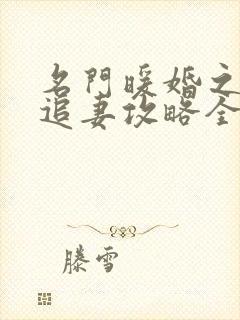 名門暖婚之
追妻攻略全
滕雪